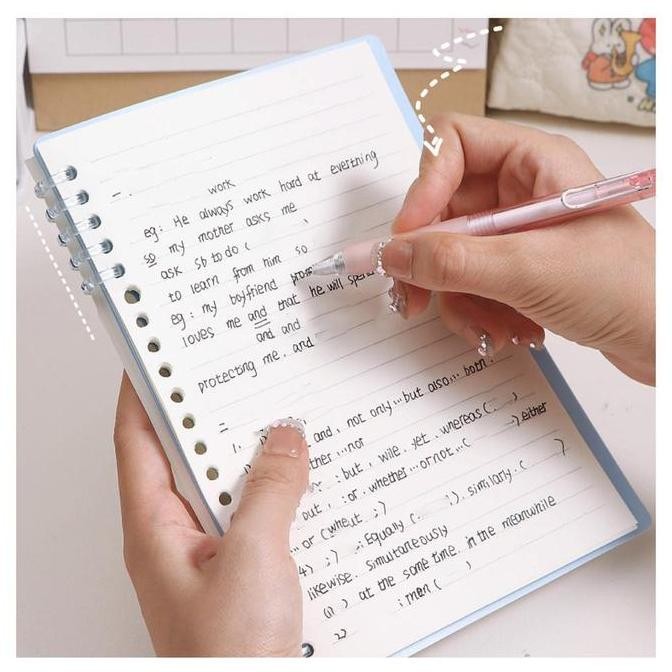 一. work
eg: He always work hard at everthing
so my mother asks me
ask sb to do (
to learn from him so
eg: my boyfriend
loves me and that he will spend
and and
protecting me. and
二
1. and, not only...but also... both.
ther...nor
: but, wile. yet. whereas (: )
out, : or. whether...or not...( ) either
or (wheut ;)
4) ;) : Equally (: ). similarly. ( )
likewise. simultaneously
(1) ) at the same time. in the meanwhile
2) : men ( )